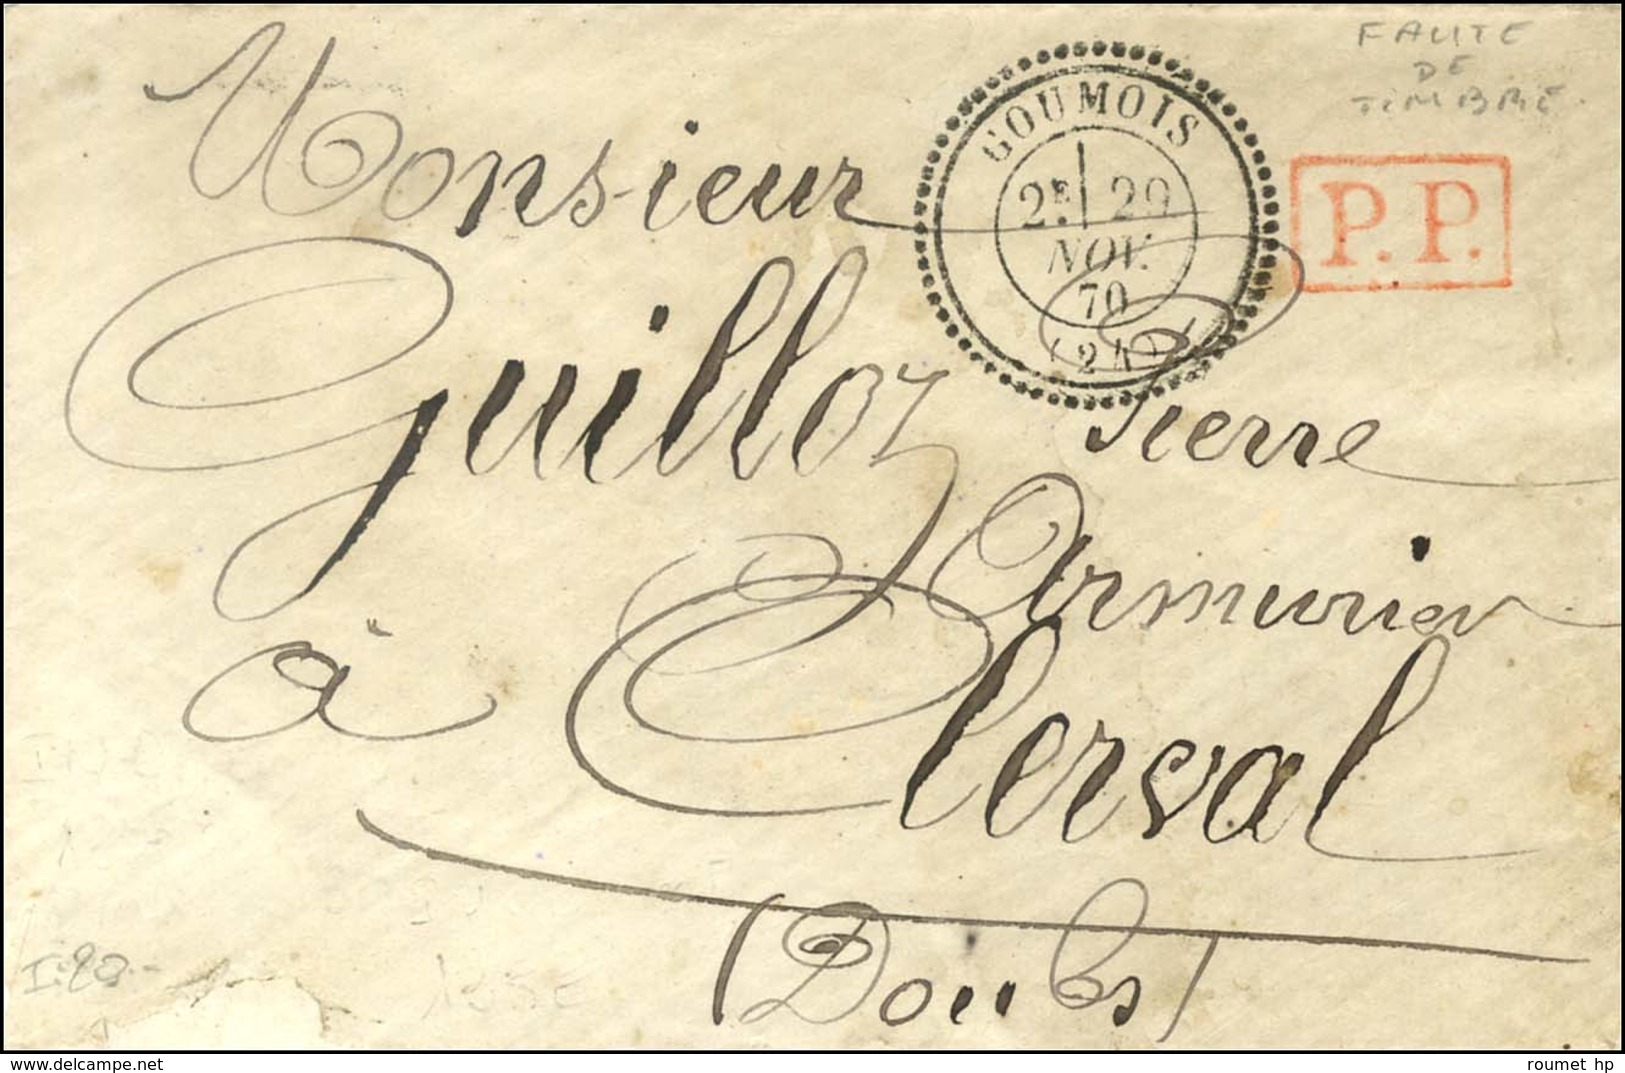 FAUTE
DE
TIMBRE.
GOUMOIS
2E 29
NOV.
70
(24)
P.P.
Monsieur
Guilloz Pierre
Armurier
à Clerval
(Doubs)
roumet hp